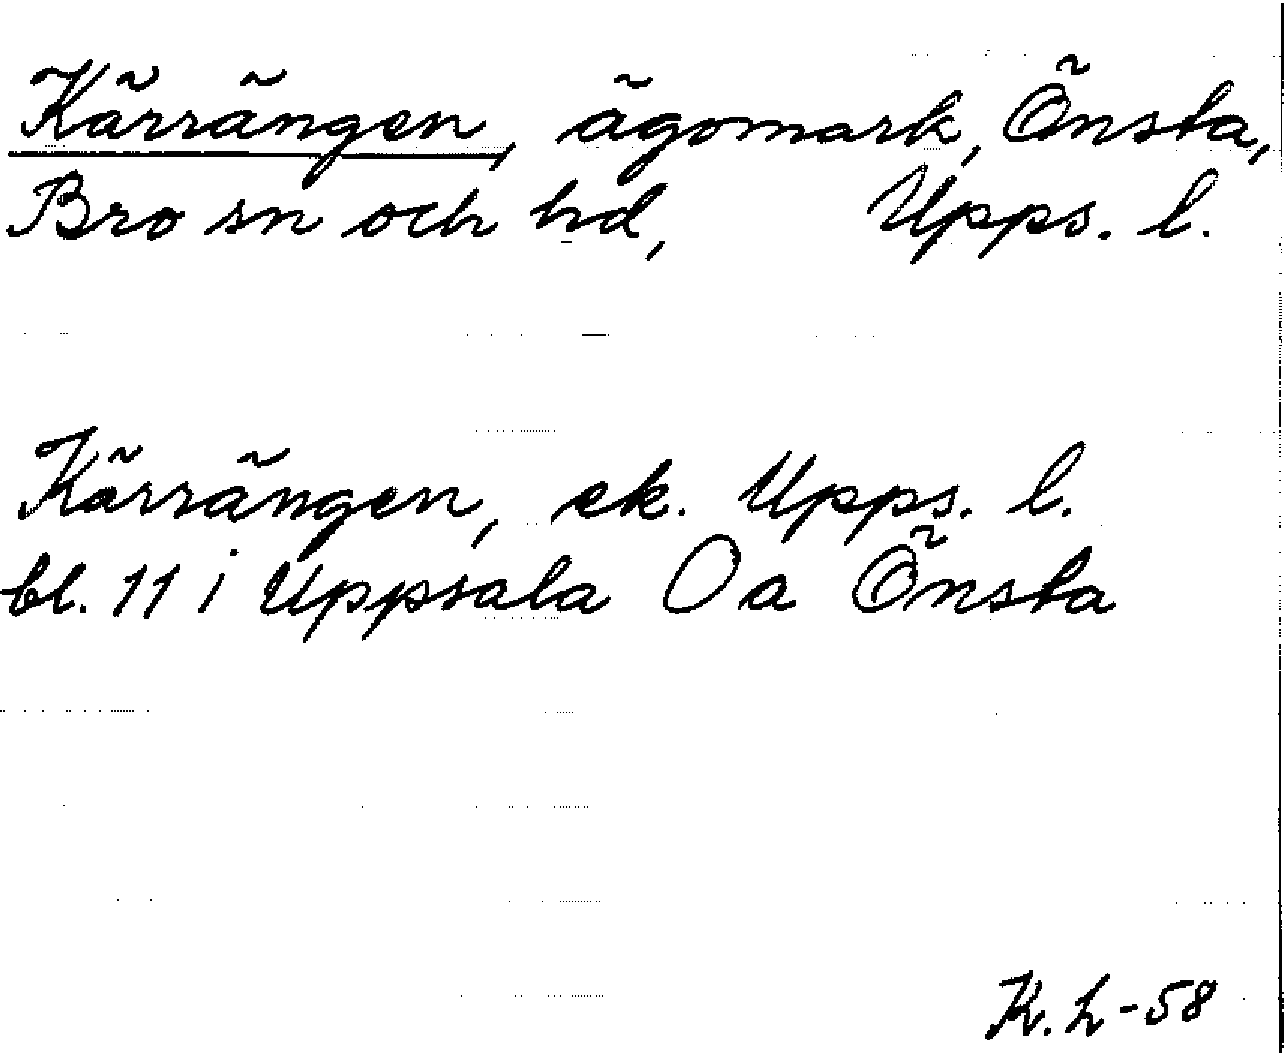 Kärrängen, ägomark, Önsta,
Bro sn och hd, Upps. l.
Kärrängen, ek. Upps. l.
bl. 11 i Uppsala Oa Önsta
K. L-58